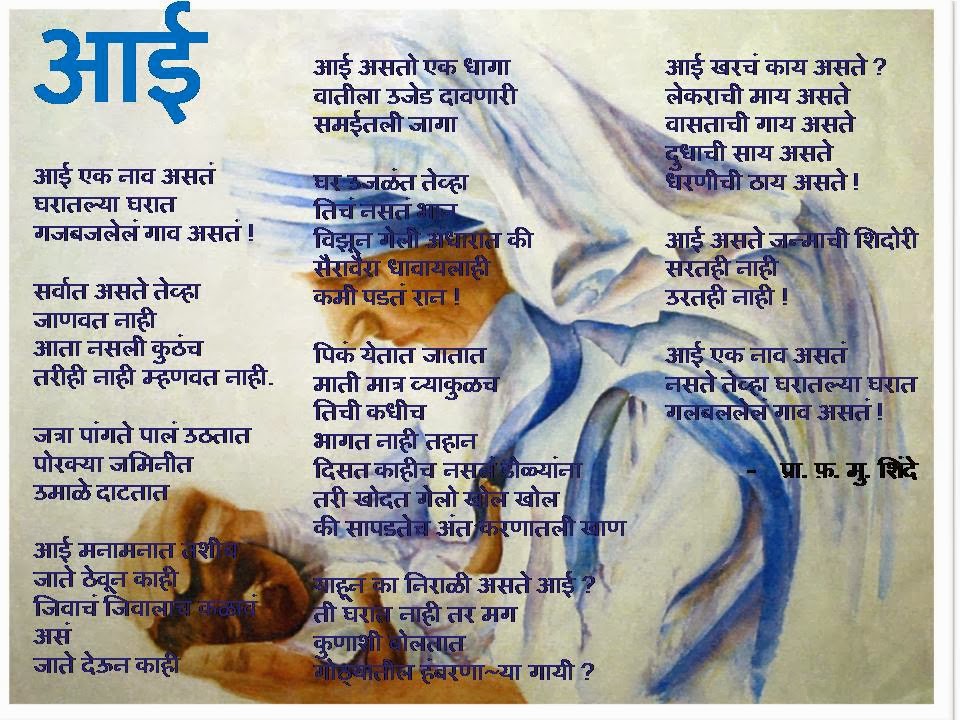 आई
आई एक नाव असतं
घरातल्या घरात
गजबजलेलं गाव असतं !
सर्वात असते तेव्हा
जाणवत नाही
आता नसली कुठंच
तरीही नाही म्हणवत नाही.
जत्रा पांगते पालं उठतात
पोरक्या जमिनीत
उमाळे दाटतात
आई मनामनात तशीच
जाते ठेवून काही
जिवाचं जिवालाच कळावं
असं
जाते देऊन काही
आई असतो एक धागा
वातीला उजेड दावणारी
समईतली जागा
घर उजळंत तेव्हा
तिचं नसतं भान
विझून गेली अंधारात की
सैरावैरा धावायलाही
कमी पडतं रान !
पिकं येतात जातात
माती मात्र व्याकुळच
तिची कधीच
भागत नाही तहान
दिसत काहीच नसतं डोळ्यांना
तरी खोदत गेलो खोल खोल
की सापडतेच अंतःकरणातली खाण
याहून का निराळी असते आई ?
ती घरात नाही तर मग
कुणाशी बोलतात
गोठ्यातील हंबरणा~या गायी ?
आई खरचं काय असते ?
लेकराची माय असते
वासताची गाय असते
दुधाची साय असते
धरणीची ठाय असते !
आई असते जन्माची शिदोरी
सरतही नाही
उरतही नाही !
आई एक नाव असतं
नसते तेव्हा घरातल्या घरात
गलबललेलं गाव असतं !
- प्रा. फ़. मु. शिंदे